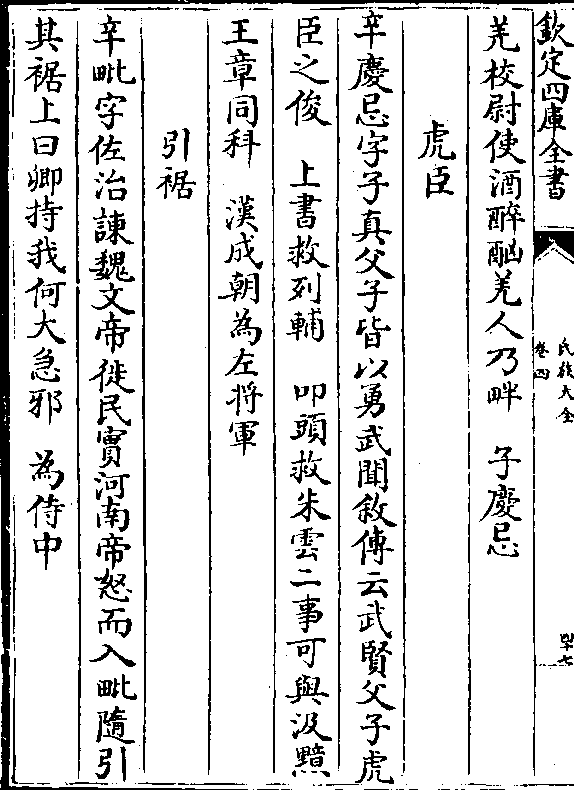 欽定四庫全書
氏族大全
卷四
羌校尉使酒醉酗羌人乃畔　子慶忌
虎臣
辛慶忌字子真父子皆以勇武聞敘傳云武賢父子虎
臣之俊　上書救列輔　叩頭救朱雲二事可與汲黯
王章同科　漢成朝為左將軍
引裾
辛毗字佐治諫魏文帝徙民實河南帝怒而入毗隨引
其裾上曰卿持我何大急邪　為侍中